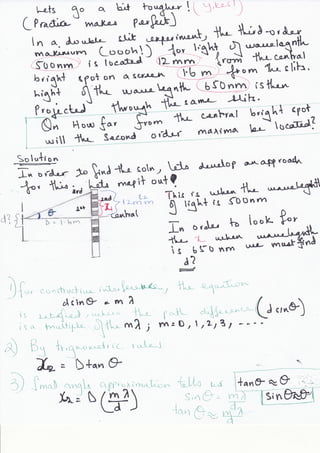 Lets go a bit tougher! (yikes!)
(Practice makes perfect)
In a double slit experiment, the third-order
maximum (oooh!) for light of wavelength
500nm is located 12mm from the central
bright spot on a screen 1.6 m from the slits.
Light of the wavelegnth 650nm is then
projected through the same slits.
Qn How far from the central bright spot
will the second order maxima be located?
Solution
In order to find the soln, lets develop an approach
for this. Lets map it out!
3rd
2nd
1st
12mm
central
d?
θ
D = 1.6m
This is when the wavelength
of light is 500nm
In order to look for
the when wavelength
is 650nm we must find
d?
1) for constructive interference, the equation
dsinθ = mλ
is satisfied, where the path difference (dsinθ)
is a multiple of the mλ; m=0,1,2,3,----
2) By trigonometric rules
X2 = Dtanθ
3) Small angle approximation tells us
tanθ ≈ θ
sinθ≈θ
X2 = D(mλ/d)
sinθ = mλ/d
tanθ ≈ mλ/d